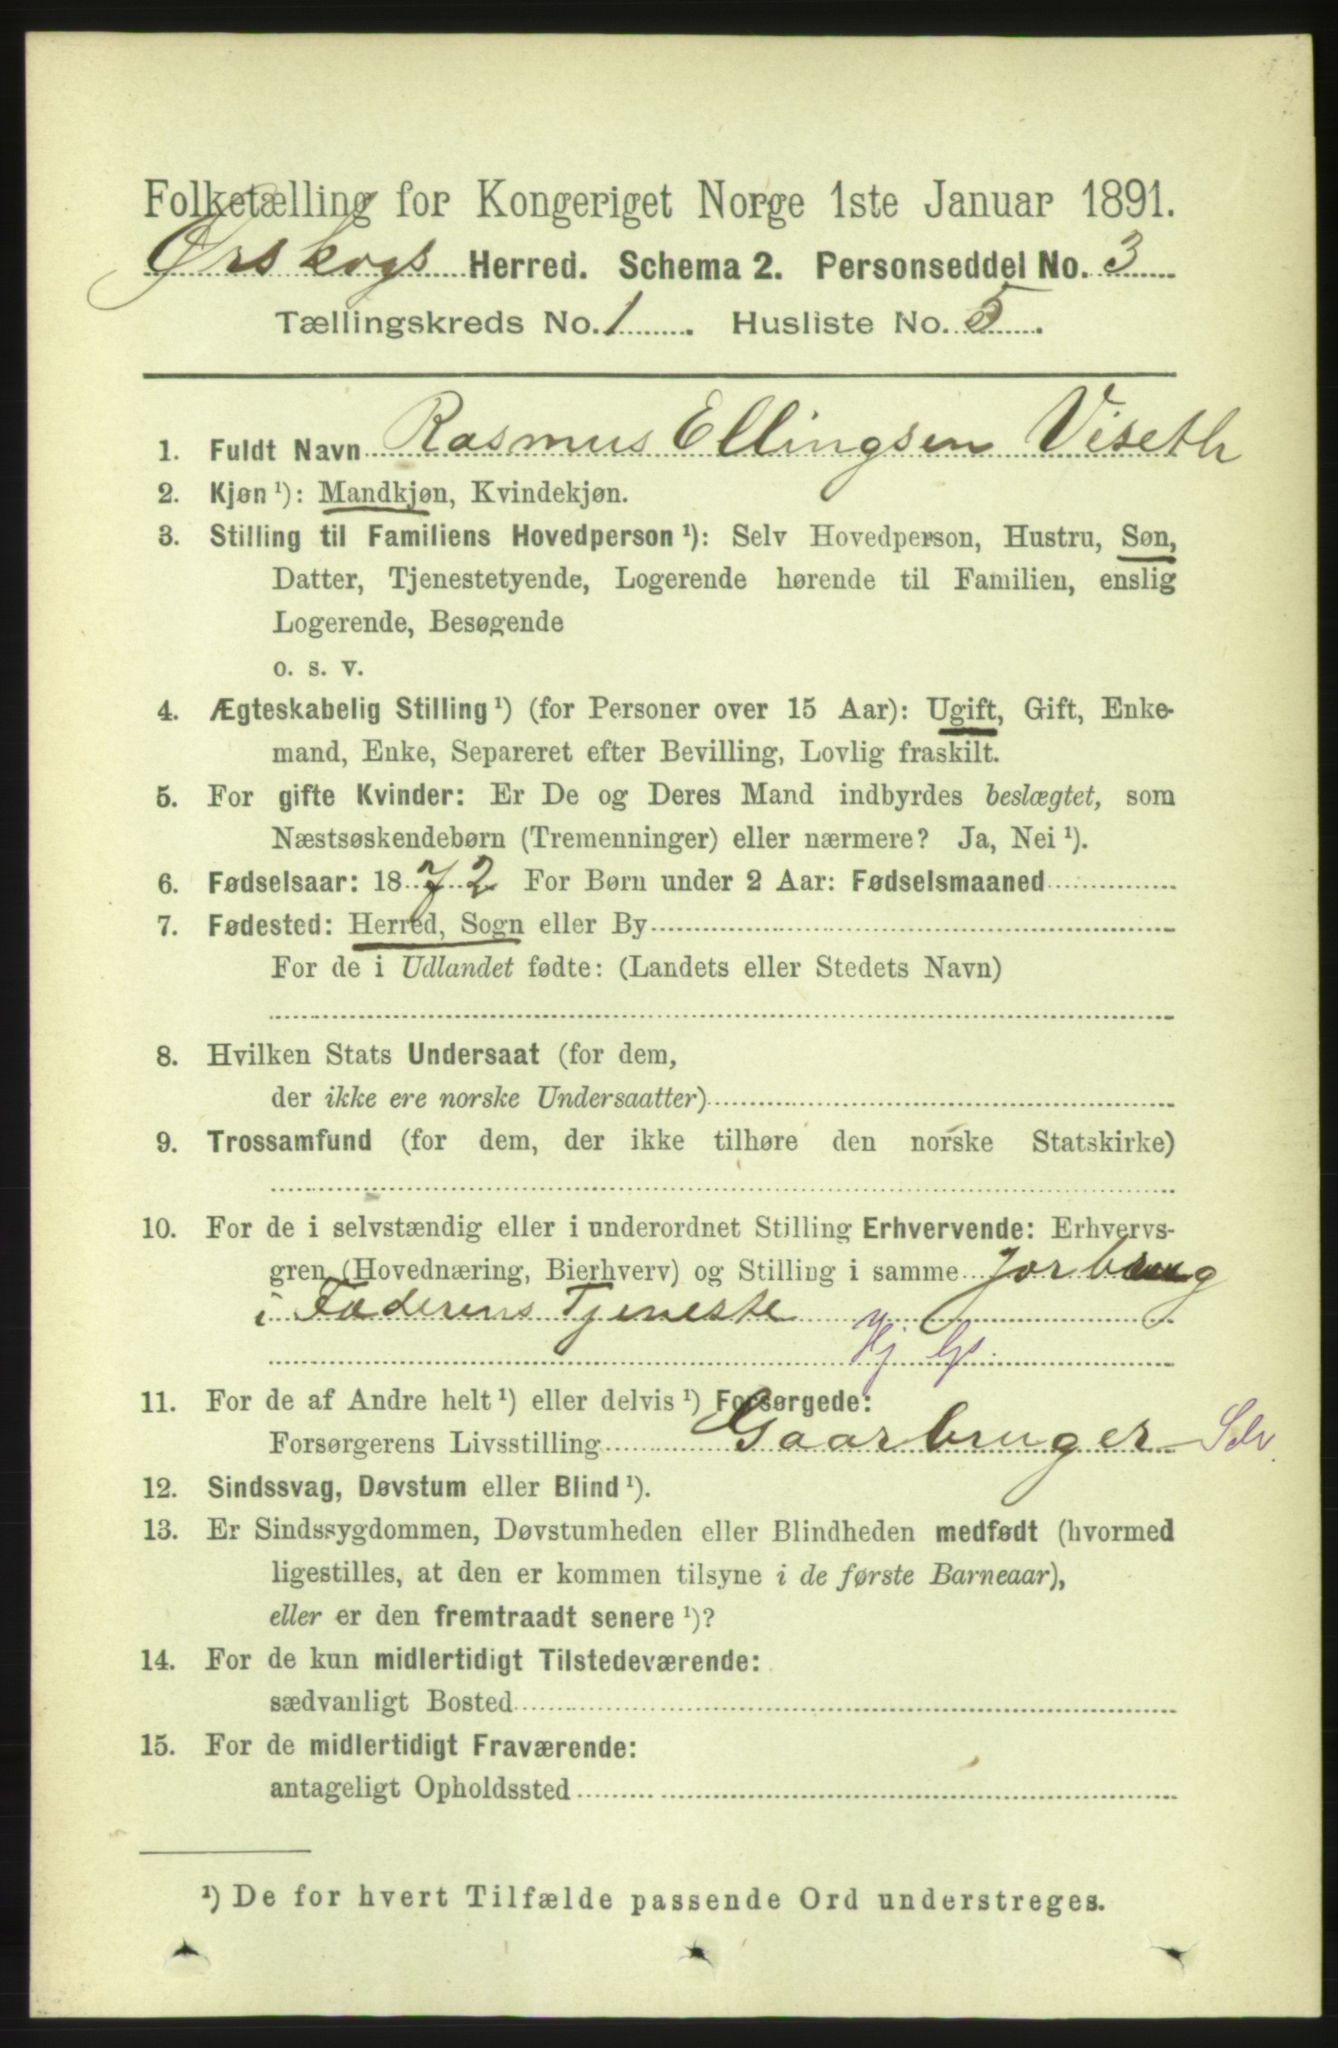 Folketælling for Kongeriget Norge 1ste Januar 1891.
Ørskogs Herred. Schema 2. Personseddel No. 3
Tællingskreds No. 1 . Husliste No. 5 .
1. Fuldt Navn Rasmus Ellingsen Viseth
2. Kjøn ¹): Mandkjøn, Kvindekjøn.
3. Stilling til Familiens Hovedperson ¹): Selv Hovedperson, Hustru, Søn,
Datter, Tjenestetyende, Logerende hørende til Familien, enslig
Logerende, Besøgende
o. s. v.
4. Ægteskabelig Stilling ¹) (for Personer over 15 Aar): Ugift, Gift, Enke-
mand, Enke, Separeret efter Bevilling, Lovlig fraskilt.
5. For gifte Kvinder: Er De og Deres Mand indbyrdes beslægtet, som
Næstsøskendebørn (Tremenninger) eller nærmere? Ja, Nei ¹).
6. Fødselsaar: 18 72 For Børn under 2 Aar: Fødselsmaaned
7. Fødested: Herred, Sogn eller By
For de i Udlandet fødte: (Landets eller Stedets Navn)
8. Hvilken Stats Undersaat (for dem,
der ikke ere norske Undersaatter)
9. Trossamfund (for dem, der ikke tilhøre den norske Statskirke)
10. For de i selvstændig eller i underordnet Stilling Erhvervende: Erhvervs-
gren (Hovednæring, Bierhverv) og Stilling i samme Jorbrug
i Faderens Tjeneste
Hj. Gs.
11. For de af Andre helt ¹) eller delvis ¹) Forsørgede:
Forsørgerens Livsstilling Gaarbruger Selv.
12. Sindssvag, Døvstum eller Blind ¹).
13. Er Sindssygdommen, Døvstumheden eller Blindheden medfødt (hvormed
ligestilles, at den er kommen tilsyne i de første Barneaar),
eller er den fremtraadt senere ¹)?
14. For de kun midlertidigt Tilstedeværende:
sædvanligt Bosted
15. For de midlertidigt Fraværende:
antageligt Opholdssted
¹) De for hvert Tilfælde passende Ord understreges.